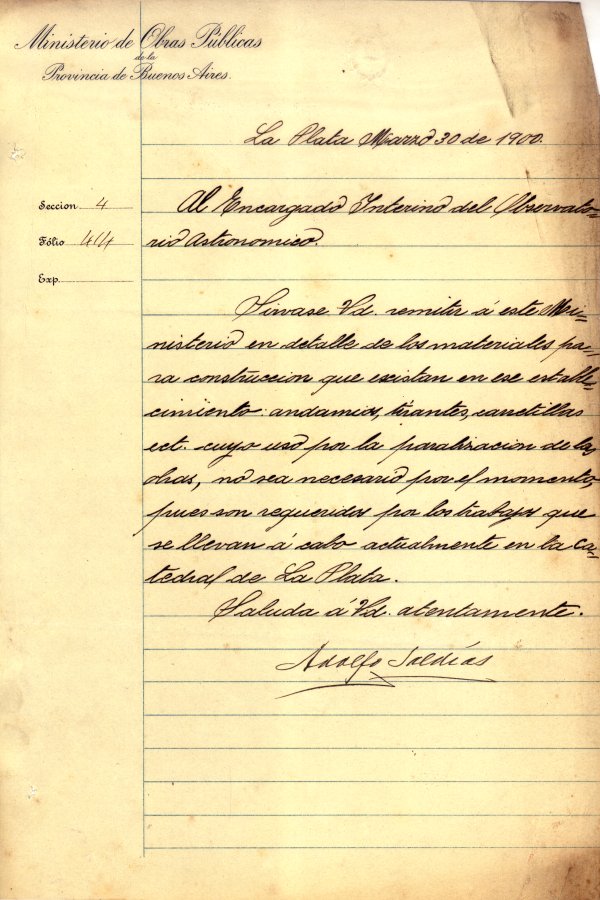 Ministerio de Obras Públicas
de la
Provincia de Buenos Aires.
La Plata Marzo 30 de 1900.
Seccion 4
Fólio 414
Exp.
Al Encargado Interino del Observato-
rio Astronomico.
Sirvase Vd. remitir á este Mi-
nisterio en detalle de los materiales pa-
ra construccion que existan en ese estable-
cimiento: andamios, tirantes, carretillas
ect. cuyo uso por la paralizacion de las
obras, no sea necesario por el momento,
pues son requeridos por los trabajos que
se llevan á cabo actualmente en la Ca-
tedral de La Plata.
Saluda á Vd. atentamente.
Adolfo Saldías